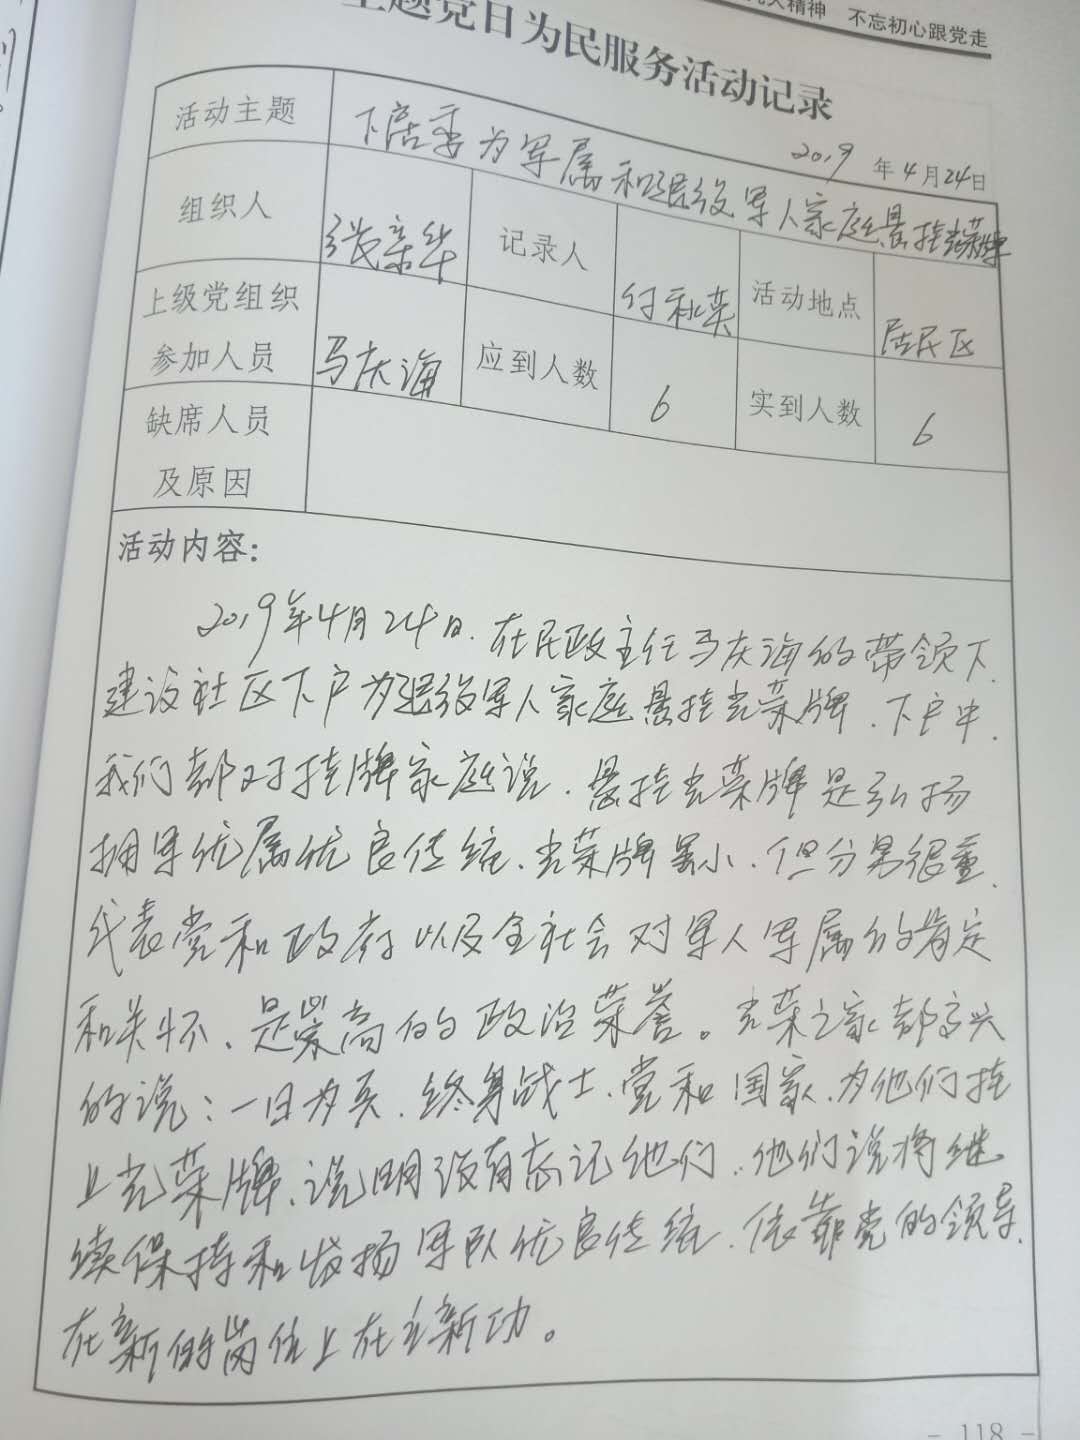 大精神 不忘初心跟党走
主题党日为民服务活动记录
2019 年 4 月 24 日
活动主题 下居委为军属和退役军人家庭悬挂光荣牌
组织人 张亲华 记录人 付秋荣 活动地点 居民区
上级党组织
参加人员 马庆海 应到人数 6 实到人数 6
缺席人员
及原因
活动内容:
2019年4月24日.在民政主任马庆海的带领下.
建设社区下户为退役军人家庭悬挂光荣牌.下户中.
我们都对挂牌家庭说.悬挂光荣牌是弘扬
拥军优属优良传统.光荣牌虽小.但分易很重.
代表党和政府以及全社会对军人军属的肯定
和关怀、是崇高的政治荣誉。光荣之家都高兴
的说:一日为兵.终身战士.党和国家.为他们挂
上光荣牌、说明没有忘记他们.他们说将继
续保持和发扬军队优良传统.依靠党的领导.
在新的岗位上在立新功。
- 118 -